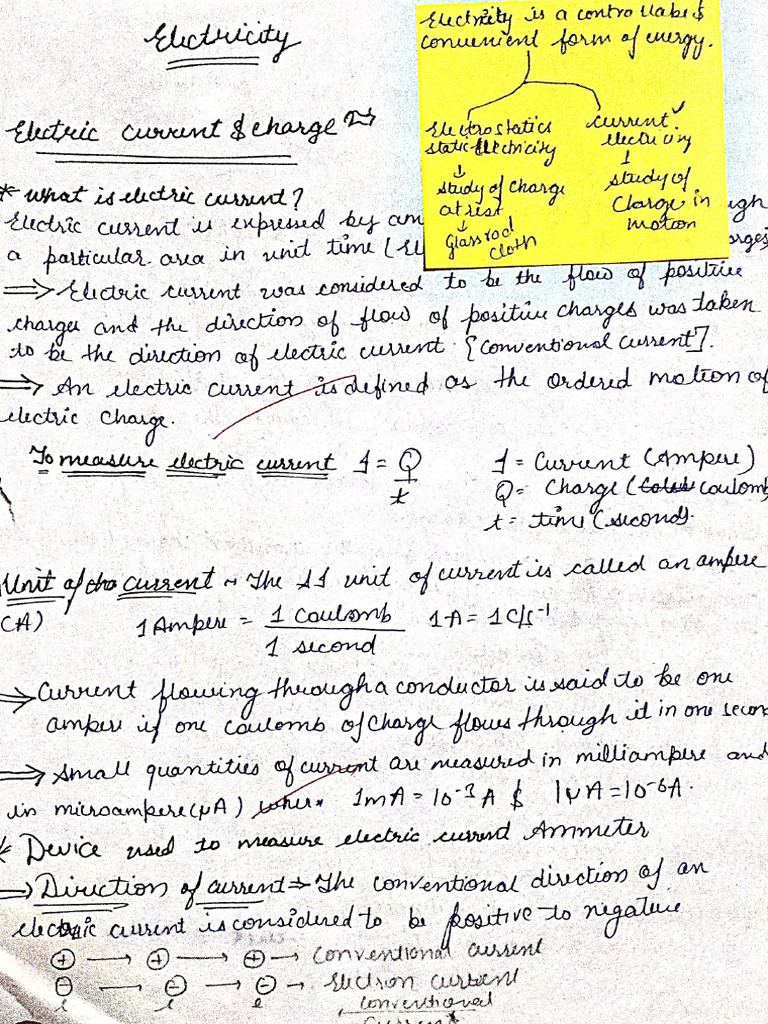 Electricity
Electricity is a controllabe &
convenient form of energy.
Electrostatics
static Electricity
↓
study of charge
at rest
↓
Glass rod
cloth
current ✓
electricity
↓
study of
Charge in
motion
Electric current & charge
* What is electric current?
Electric current is expressed by am
a particular area in unit time
⇒ Electric current was considered to be the flow of positive
charges and the direction of flow of positive charges was taken
to be the direction of electric current. [conventional current].
⇒ An electric current is defined as the ordered motion of
electric charge.
To measure electric current I = Q/t
I = Current (Ampere)
Q = Charge (coulomb)
t = time (second).
Unit of the current ~ The SI unit of current is called an ampere
(A) 1 Ampere = 1 coulomb / 1 second 1A = 1 C/s⁻¹
⇒ Current flowing through a conductor is said to be one
ampere if one coulomb of charge flows through it in one secon
⇒ Small quantities of current are measured in milliampere and
in microampere (μA) where 1mA = 10⁻³ A & 1μA = 10⁻⁶A.
* Device used to measure electric current Ammeter
⇒ Direction of current ⇒ The conventional direction of an
electric current is considered to be positive to negative
⊕ → ⊕ → ⊕ → conventional current
⊖ → ⊖ → ⊖ → Electron current
e e e conventional
current